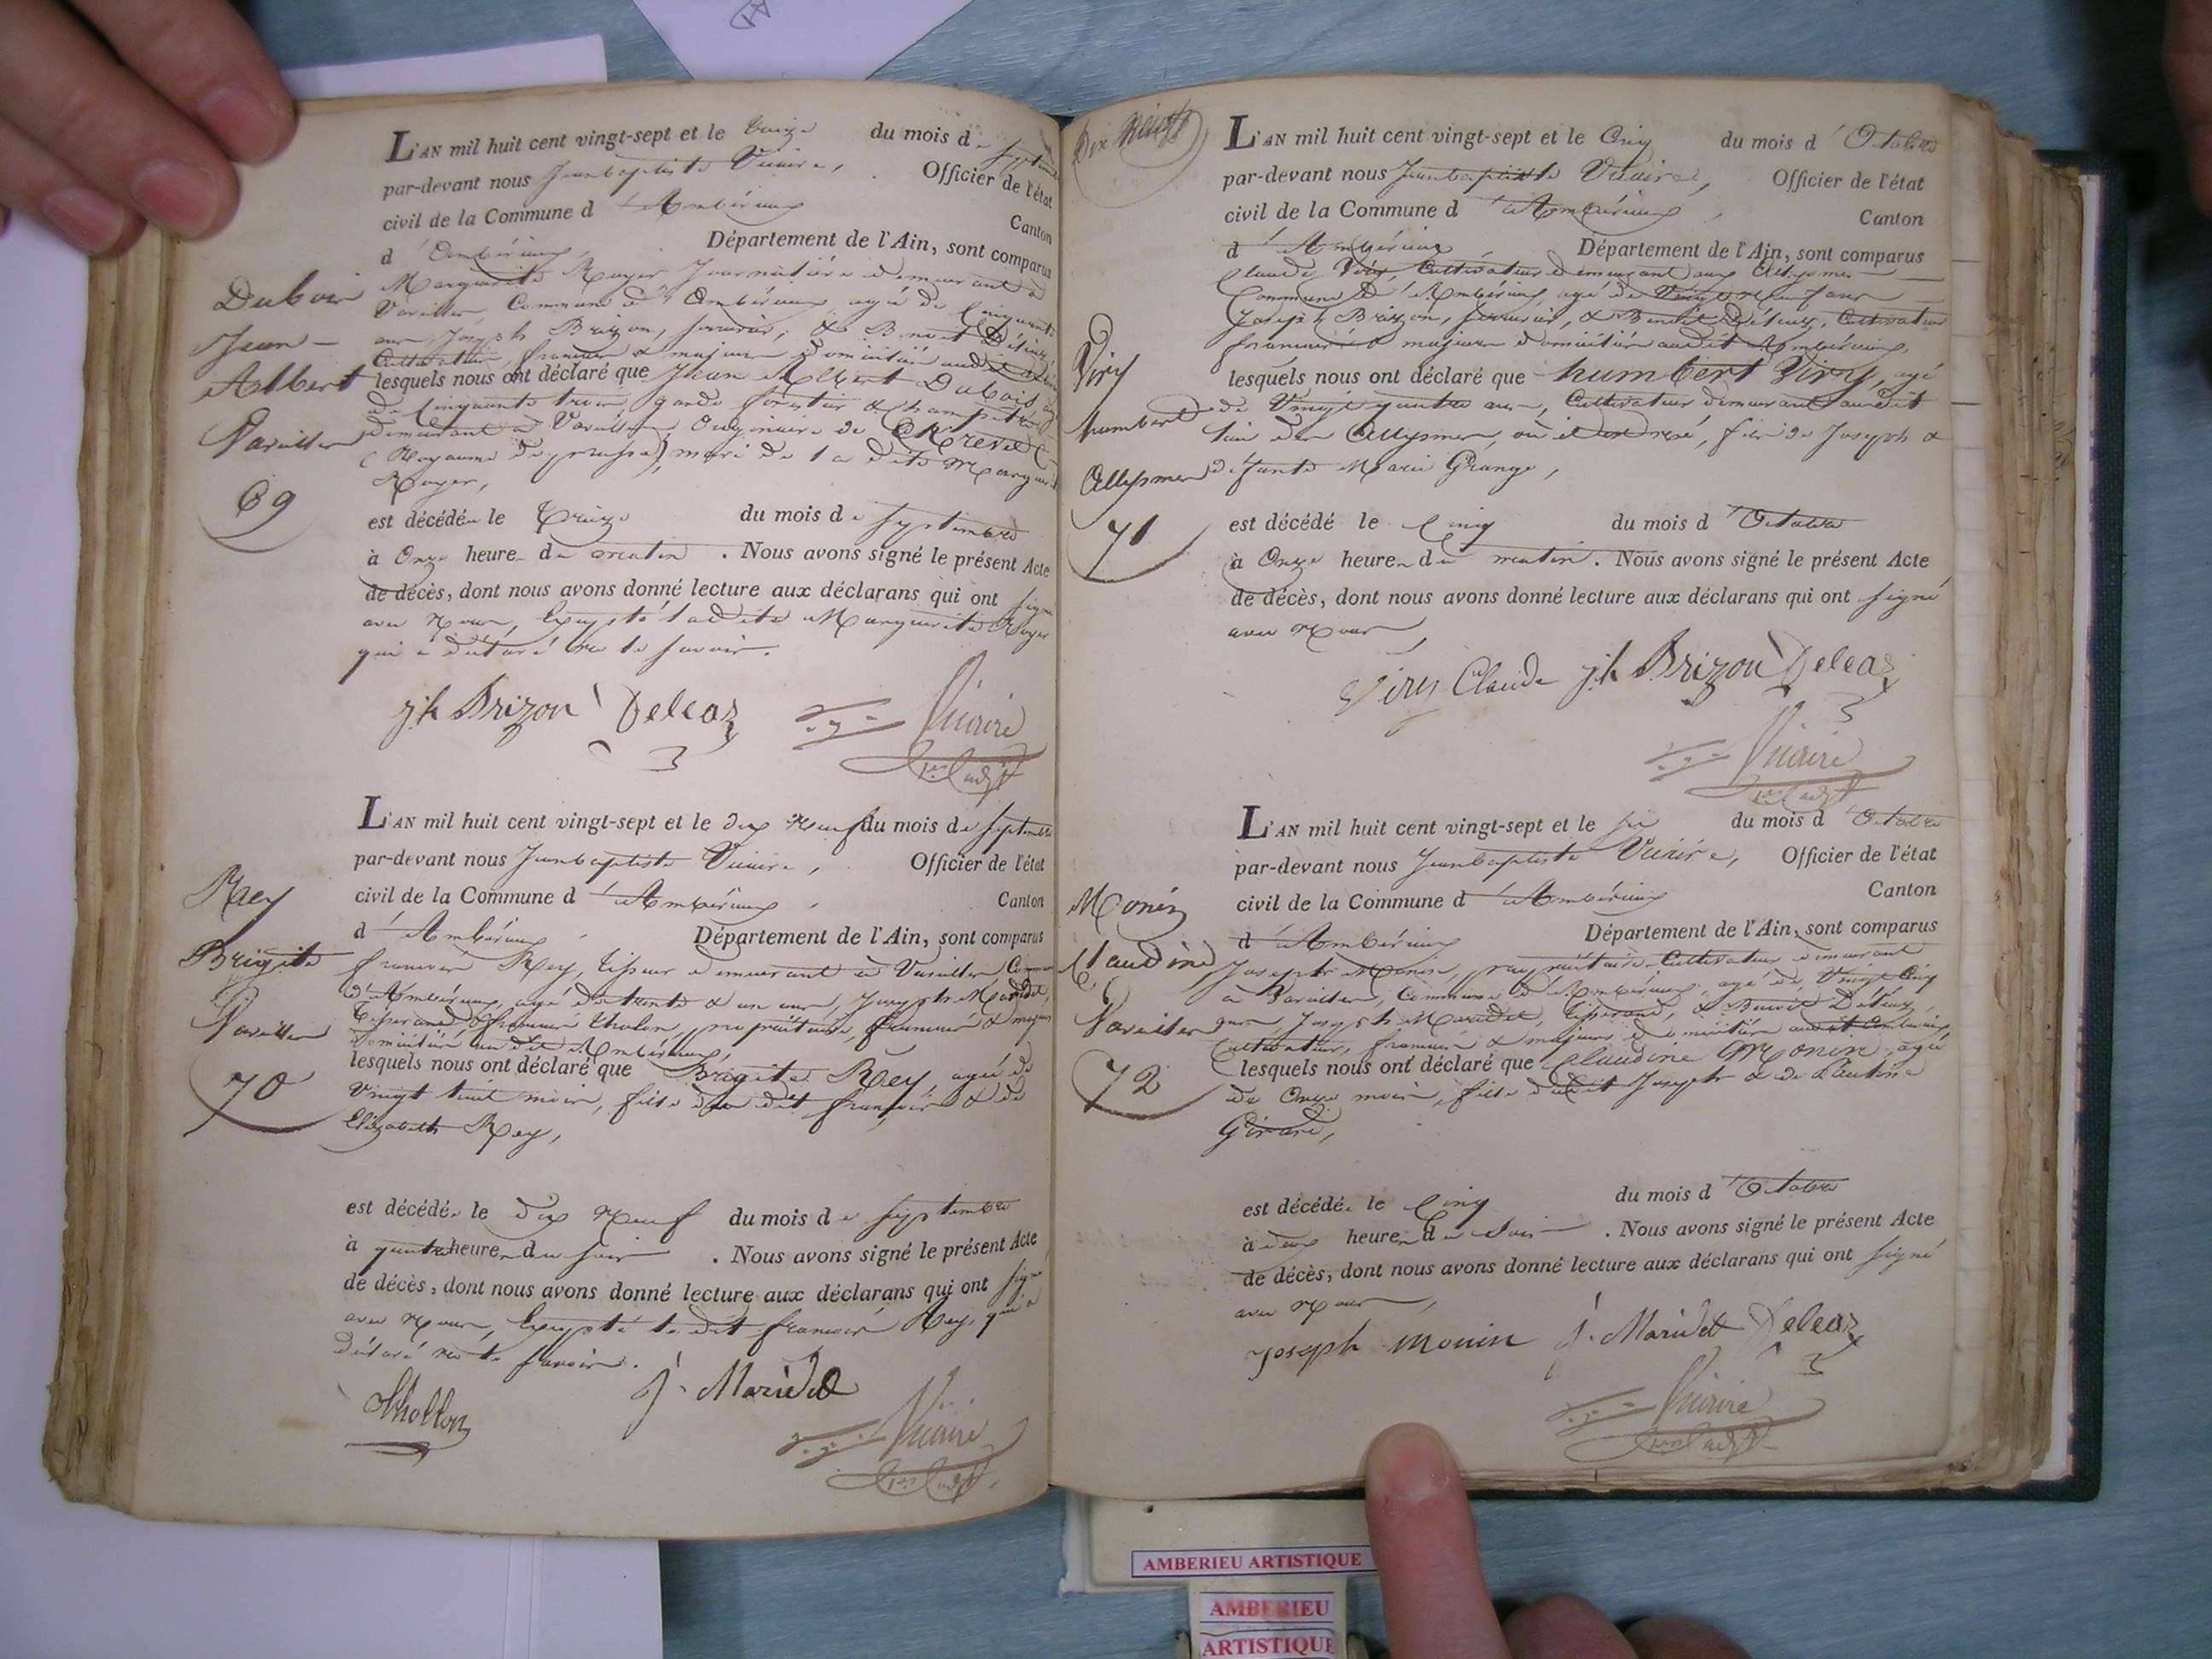 Dubois
Jean
Albert
Vareilles
69
L'AN mil huit cent vingt-sept et le treize du mois de septembre
par-devant nous Jeanbaptiste Vicaire, Officier de l'état
civil de la Commune d'Ambérieux Canton
d'Ambérieux, Département de l'Ain, sont comparus
Marguerite Royer Journalière demeurant à
Vareilles, Commune d'Ambérieux agée de Cinquante
ans Joseph Brizon, & Benoit
Cultivateur, français & majeurs domiciliés audit
lesquels nous ont déclaré que Jean Albert Dubois
de Cinquante trois garde forestier & Champêtre
demeurant à Vareilles Originaire de
(Royaume de prusse), mari de la dite
Royer,
est décédé le treize du mois de septembre
à Onze heures du matin. Nous avons signé le présent Acte
de décès, dont nous avons donné lecture aux déclarans qui ont signé
avec Nous, Excepté ladite Marguerite Royer
qui a déclaré ne le savoir.
jh Brizon Deleaz Vicaire
Rey
Brigite
Vareilles
70
L'AN mil huit cent vingt-sept et le dix Neuf du mois de septembre
par-devant nous Jeanbaptiste Vicaire, Officier de l'état
civil de la Commune d'Ambérieux, Canton
d'Ambérieux, Département de l'Ain, sont comparus
françois Rey, demeurant à Vareilles Commune
d'Ambérieux, agé de trente & un ans, Joseph Maridet,
Tisserand & françois Chollon, propriétaire, français & majeurs
domiciliés au dit Ambérieux,
lesquels nous ont déclaré que Brigite Rey, agée de
Vingt huit mois, fille du dit françois & de
Elizabeth Rey,
est décédée le dix Neuf du mois de septembre
à quatre heures du soir. Nous avons signé le présent Acte
de décès, dont nous avons donné lecture aux déclarans qui ont signé
avec Nous, Excepté le dit françois Rey, qui a
déclaré ne le savoir.
Chollon J. Maridet Vicaire
Dix Neuf
Viry
humbert
Allymes
71
L'AN mil huit cent vingt-sept et le Cinq du mois d'Octobre
par-devant nous Jeanbaptiste Vicaire, Officier de l'état
civil de la Commune d'Ambérieux, Canton
d'Ambérieux Département de l'Ain, sont comparus
Claude Viry, Cultivateur demeurant aux Allymes
Commune d'Ambérieux, agé de Vingt Neuf ans
Joseph Brizon, & Benoit Cultivateur
français & majeurs domiciliés audit Ambérieux,
lesquels nous ont déclaré que humbert Viry, agé
de Vingt quatre ans, Cultivateur demeurant audit
lieu des Allymes, où il est né, fils de Joseph &
défunte Marie Grange,
est décédé le Cinq du mois d'Octobre
à Onze heures du matin. Nous avons signé le présent Acte
de décès, dont nous avons donné lecture aux déclarans qui ont signé
avec Nous,
Viry Claude jh Brizon Deleaz
Vicaire
Monin
Claudine
Vareilles
72
L'AN mil huit cent vingt-sept et le six du mois d'Octobre
par-devant nous Jeanbaptiste Vicaire, Officier de l'état
civil de la Commune d'Ambérieux Canton
d'Ambérieux Département de l'Ain, sont comparus
Joseph Monin, propriétaire Cultivateur demeurant
à Vareilles, Commune d'Ambérieux, agé de Vingt Cinq
ans Joseph Maridet, Tisserand, & Benoit
Cultivateur, français & majeurs domiciliés audit Ambérieux,
lesquels nous ont déclaré que Claudine Monin, agée
de Onze mois, fille dudit Joseph & de
Girard,
est décédée le Cinq du mois d'Octobre
à deux heures du soir. Nous avons signé le présent Acte
de décès, dont nous avons donné lecture aux déclarans qui ont signé
avec Nous,
Joseph Monin J. Maridet Deleaz
Vicaire
AMBERIEU ARTISTIQUE
AMBERIEU
ARTISTIQUE